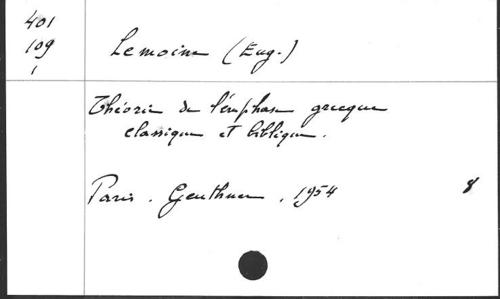 401
109
1
Lemoine (Eug.)
Théorie de l'emphase grecque
classique et biblique.
Paris. Geuthner, 1954
8